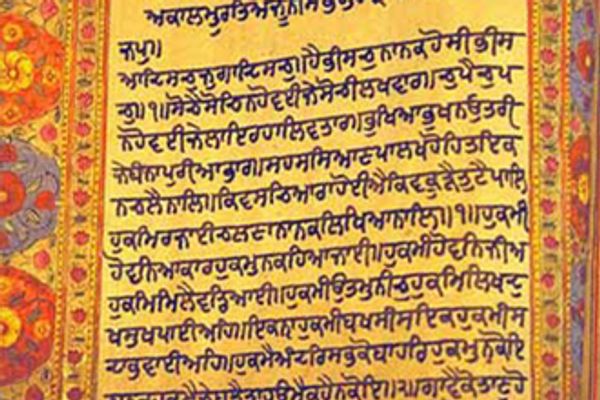 ਅਕਾਲਮੂਰਤਿਅਜੂਨੀਸੈਭੰ
ਜਪੁ॥
ਆਦਿਸਚੁਜੁਗਾਦਿਸਚੁ॥ਹੈਭੀਸਚੁਨਾਨਕਹੋਸੀਭੀਸ
ਚੁ॥੧॥ਸੋਚੈਸੋਚਿਨਹੋਵਈਜੇਸੋਚੀਲਖਵਾਰ॥ਚੁਪੈਚੁਪ
ਨਹੋਵਈਜੇਲਾਇਰਹਾਲਿਵਤਾਰ॥ਭੁਖਿਆਭੁਖਨਉਤਰੀ
ਜੇਬੰਨਾਪੁਰੀਆਭਾਰ॥ਸਹਸਸਿਆਣਪਾਲਖਹੋਹਿਤਇਕ
ਨਚਲੈਨਾਲਿ॥ਕਿਵਸਚਿਆਰਾਹੋਈਐਕਿਵਕੂੜੈਤੁਟੈਪਾਲਿ
ਹੁਕਮਿਰਜਾਈਚਲਣਾਨਾਨਕਲਿਖਿਆਨਾਲਿ॥੧॥ਹੁਕਮੀ
ਹੋਵਨਿਆਕਾਰਹੁਕਮੁਨਕਹਿਆਜਾਈ॥ਹੁਕਮੀਹੋਵਨਿਜੀਅ
ਹੁਕਮਿਮਿਲੈਵਡਿਆਈ॥ਹੁਕਮੀਉਤਮੁਨੀਚੁਹੁਕਮਿਲਿਖਿਦੁ
ਖਸੁਖਪਾਈਅਹਿ॥ਇਕਨਾਹੁਕਮੀਬਖਸੀਸਇਕਿਹੁਕਮੀਸ
ਦਾਭਵਾਈਅਹਿ॥ਹੁਕਮੈਅੰਦਰਿਸਭੁਕੋਬਾਹਰਿਹੁਕਮੁਨਕੋਇ
ਨਾਨਕਹੁਕਮੈਜੇਬੁਝੈਤਹਉਮੈਕਹੈਨਕੋਇ॥੨॥ਗਾਵੈਕੋਤਾਣੁਹੋ